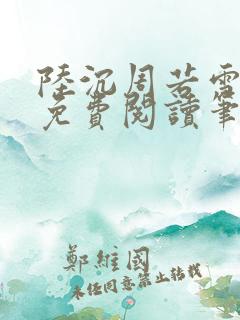 陸沉周若雪
免費閱讀筆
鄭維國
未經同意禁止轉載